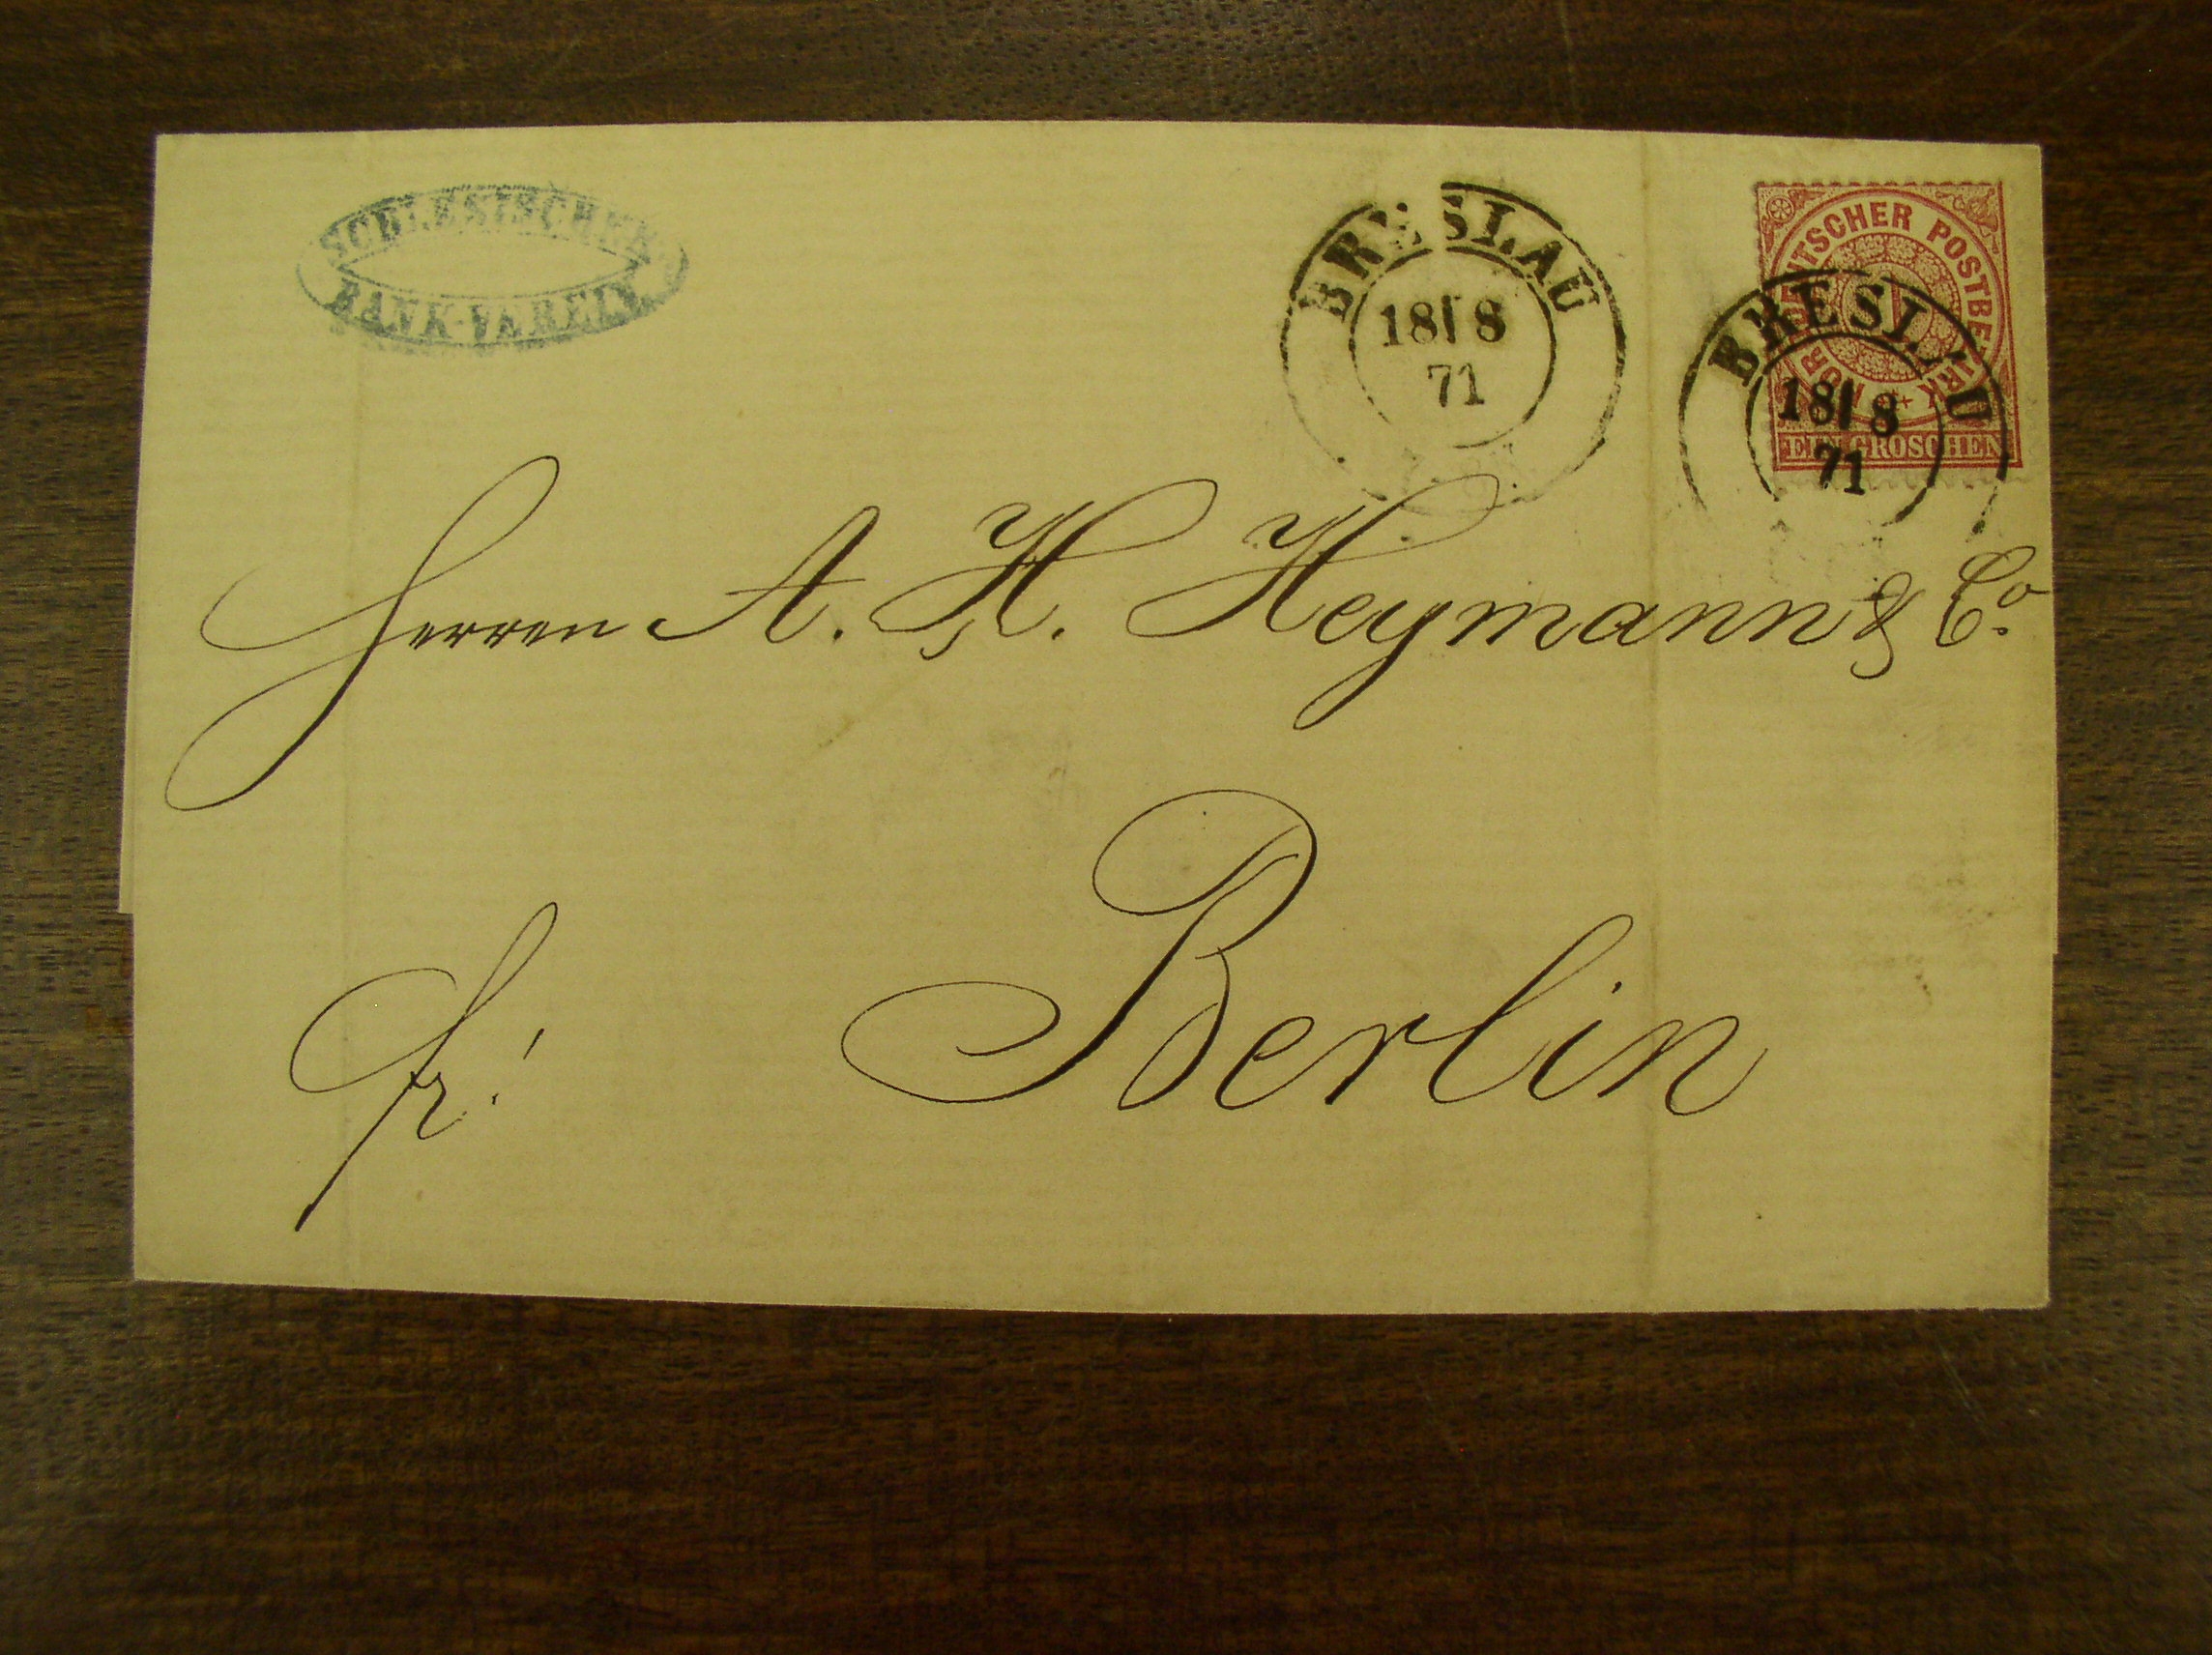 SCHLESISCHER
BANK-VEREIN
BRESLAU
18 8
71
NORDDEUTSCHER POSTBEZIRK
1
EIN GROSCHEN
BRESLAU
18 8
71
Herren A. H. Heymann & Co.
fr!
Berlin